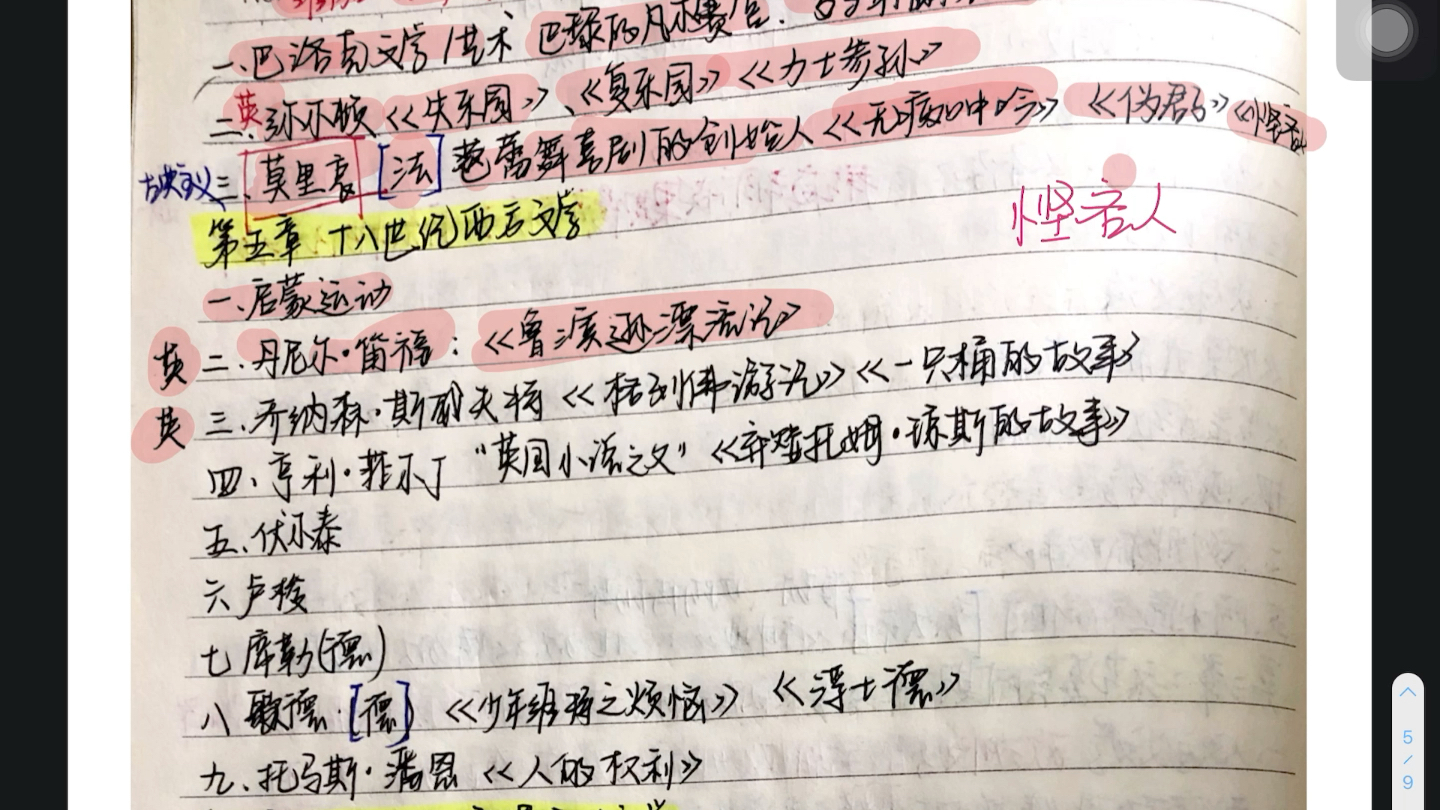 一、巴洛克文学/艺术 巴黎的凡尔赛宫、
英 二、弥尔顿《失乐园》、《复乐园》《力士参孙》
古典主义 三、莫里哀[法] 芭蕾舞喜剧的创始人《无病呻吟》《伪君子》《悭吝
悭吝人
第五章 十八世纪西方文学
一、启蒙运动
英 二、丹尼尔·笛福：《鲁滨逊漂流记》
英 三、乔纳森·斯威夫特《格列佛游记》《一只桶的故事》
四、亨利·菲尔丁 “英国小说之父”《弃婴托姆·琼斯的故事》
五、伏尔泰
六 卢梭
七 席勒(德)
八 歌德·[德]《少年维特之烦恼》《浮士德》
九、托马斯·潘恩《人的权利》
5/9